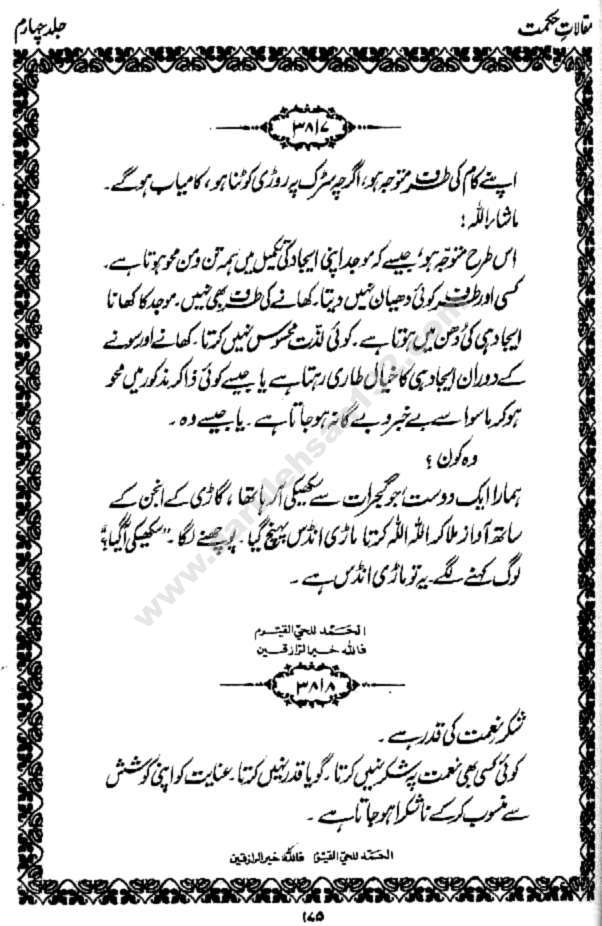 مقالاتِ حکمت
جلد چہارم
۳۸۱۷
اپنے کام کی طرف متوجہ ہو، اگرچہ سڑک پر روڑی کوٹنا ہو، کامیاب ہوگے۔
ماشاراللہ!
اس طرح متوجّہ ہو، جیسے کہ موجد اپنی ایجاد کی تکمیل میں ہمہ تن ومن محو ہوتا ہے۔
کسی اور طرف کوئی دھیان نہیں دیتا۔ کھانے کی طرف بھی نہیں۔ موجد کا کھانا
ایجاد ہی کی دُھن میں ہوتا ہے۔ کوئی لذّت محسوس نہیں کرتا۔ کھانے اور سونے
کے دوران ایجاد ہی کا خیال طاری رہتا ہے یا جیسے کوئی ذاکر مذکور میں محو
ہو کر ماسوا سے بے خبر و بے گانہ ہو جاتا ہے۔ یا جیسے وہ۔
وہ کون؟
ہمارا ایک دوست! جو گجرات سے سکھیکی آ رہا تھا، گاڑی کے انجن کے
ساتھ آواز ملا کر اللہ اللہ کرتا ماڑی انڈس پہنچ گیا۔ پوچھنے لگا۔ "سکھیکی آگیا؟"
لوگ کہنے لگے۔ یہ تو ماڑی انڈس ہے۔
الحمد للحیّ القیّوم
فاللہ خیر الرازقین
۳۸۱۸
شکر نعمت کی قدر ہے۔
کوئی کسی بھی نعمت پہ شکر نہیں کرتا۔ گویا قدر نہیں کرتا۔ عنایت کو اپنی کوشش
سے منسوب کرکے ناشکرا ہو جاتا ہے۔
الحمد للحیّ القیّوم فاللہ خیر الرازقین
۱۷۵